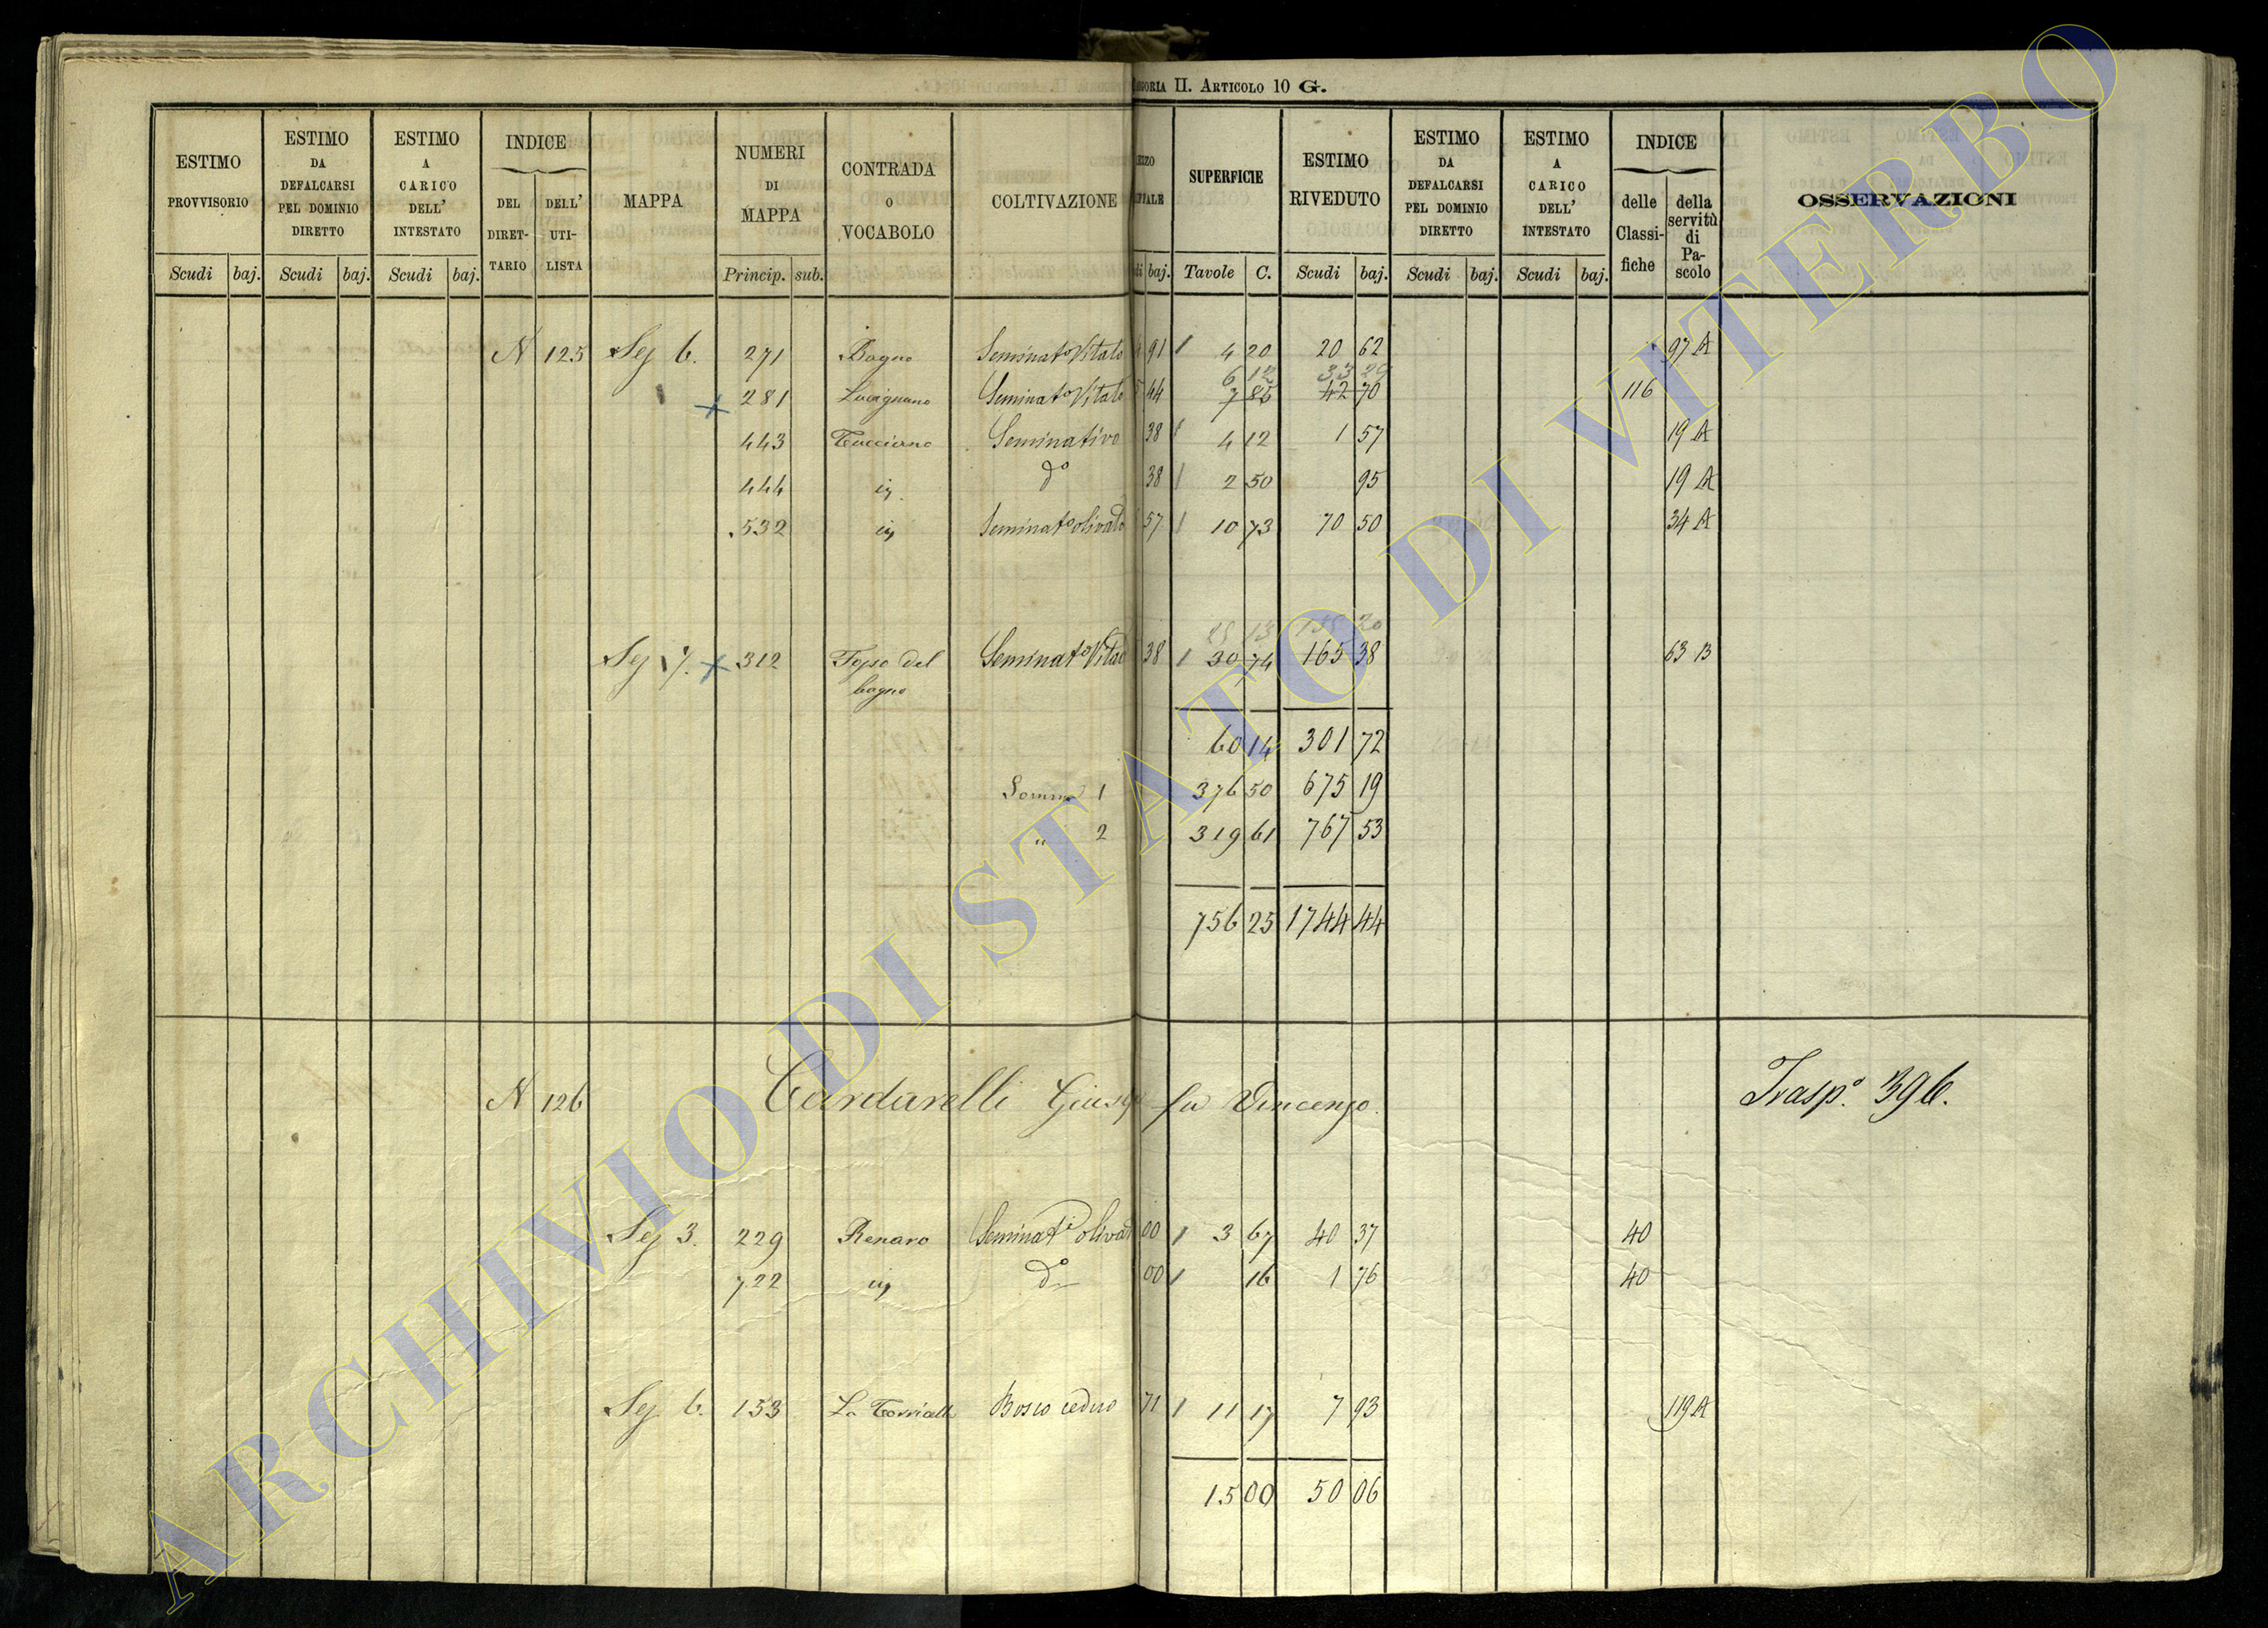 egoria II. Articolo 10 G.
ESTIMO PROVVISORIO Scudi baj.
ESTIMO DA DEFALCARSI PEL DOMINIO DIRETTO Scudi baj.
ESTIMO A CARICO DELL' INTESTATO Scudi baj.
INDICE DEL DIRET-TARIO DELL' UTI-LISTA
MAPPA
NUMERI DI MAPPA Princip. sub.
CONTRADA O VOCABOLO
COLTIVAZIONE
baj.
SUPERFICIE Tavole C.
ESTIMO RIVEDUTO Scudi baj.
ESTIMO DA DEFALCARSI PEL DOMINIO DIRETTO Scudi baj.
ESTIMO A CARICO DELL' INTESTATO Scudi baj.
INDICE delle Classi-fiche della servitù di Pa-scolo
OSSERVAZIONI
N 125 Sez 6. 271 Bagno Seminato Vitato 91 4 20 20 62 97 A
6 12 33 29
281 Lucignano Seminato Vitato 44 7 85 42 70 116
443 Cucciano Seminativo 38 4 12 1 57 19 A
444 ivi do 38 2 50 95 19 A
532 ivi Seminato olivato 57 10 73 70 50 34 A
25 13 135 20
Sez 7. 312 Fosso del Seminato Vitato 38 30 74 165 38 63 B
bagno
60 14 301 72
Somma 1 376 50 675 19
" 2 319 61 767 53
756 25 1744 44
N 126 Cardarelli Giusep fu Vincenzo. Trasp.o 396.
Sez 3. 229 Renaro Seminato olivato 00 3 67 40 37 40
722 ivi do 00 16 1 76 40
Sez 6. 153 La Torricella Bosco ceduo 71 11 17 7 93 119 A
15 00 50 06
ARCHIVIO DI STATO DI VITERBO